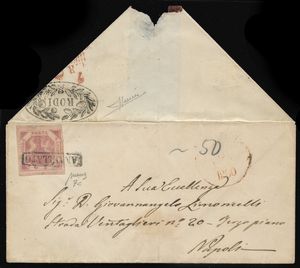 RODI
ANNULLATO
~ 50
A Sua Eccellenza
Sig. D. Giovannangelo Limoncelli
Strada Ventaglieri n.° 20 - Terzo piano
Napoli